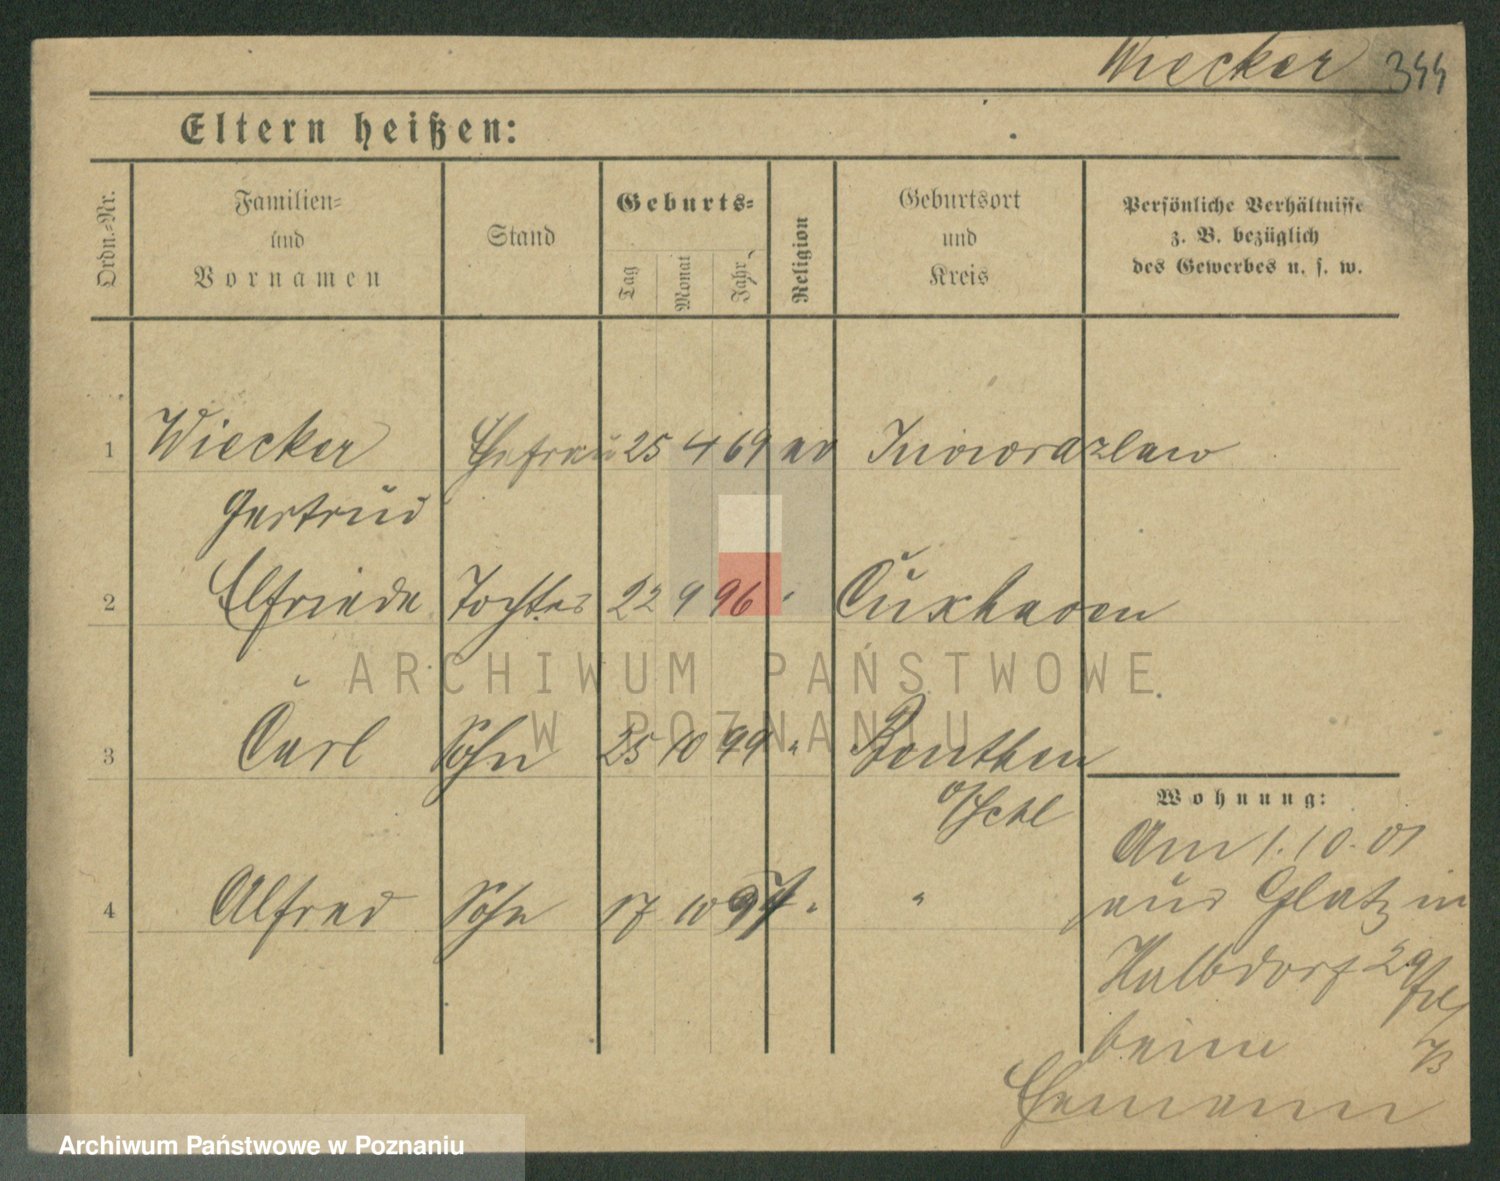 Wiecker 344
Eltern heißen:
Ordn.-Nr.
Familien-
und
Vornamen
Stand
Geburts-
Tag
Monat
Jahr
Religion
Geburtsort
und
Kreis
Persönliche Verhältnisse
z. B. bezüglich
des Gewerbes u. s. w.
1 Wiecker Ehefrau 25 4 69 ev Inowrazlaw
Gertrud
2 Elfriede Tochter 22 9 96 " Cuxhaven
3 Carl Sohn 25 10 99 " Beuthen
o/Schl
4 Alfred Sohn 17 10 "  "
Wohnung:
Am 1.10.01
aus Glatz in
Halbdorf 29
beim
Ehemann
ARCHIWUM PAŃSTWOWE
W POZNANIU
Archiwum Państwowe w Poznaniu